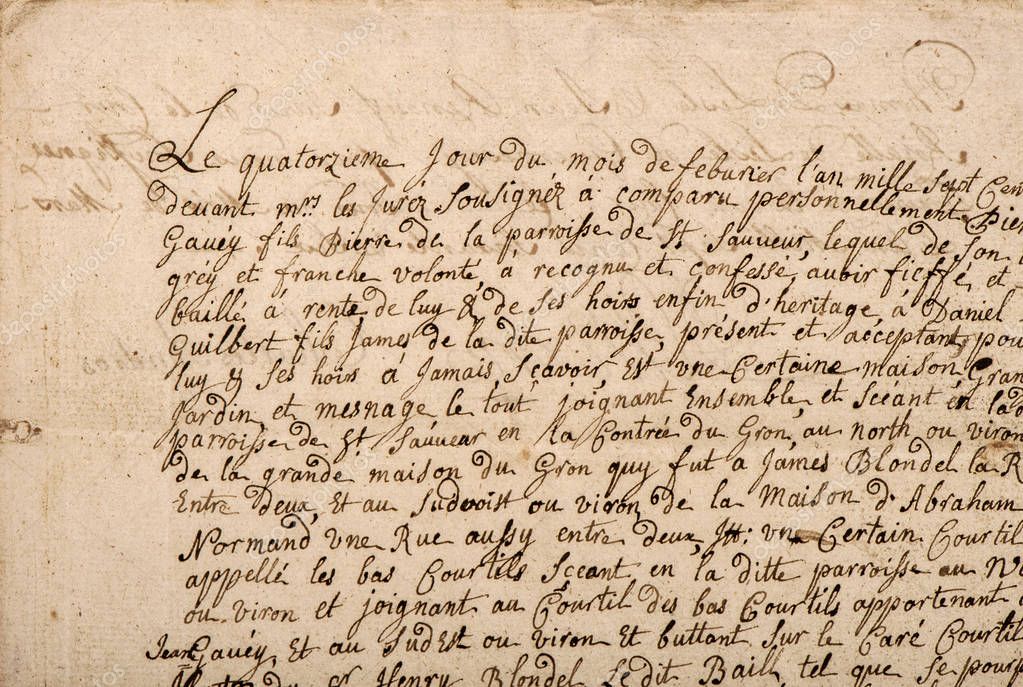 Le quatorzieme Jour du mois de feburier l'an mille sept Cen
devant mrs les Juréz Sousignéz à comparu personnellement Pier
Gavéy fils Pierre de la parroisse de St Sauveur, lequel de son
gréy et franche volonté, à recognu et confessé, avoir fieffé, et
baillé à rente de luy & de ses hoirs enfin d'heritage, à Daniel
Guilbert fils James de la dite parroisse, présent et acceptant, pou
luy & ses hoirs à Jamais, Sçavoir, Est vne Certaine maison, Gran
Jardin, et mesnage le tout joignant Ensemble, et Scéant en la d
parroisse de St Sauveur en la Contrée du Gron, au north ou viron
de la grande maison du Gron quy fut a James Blondel la R
Entre deux, Et au Sudvoist ou viron de la Maison d'Abraham
Normand vne Rue aussy entre deux, Itt: vn Certain Courtil
appellé les bas Courtils Sceant en la ditte parroisse au No
ou viron et joignant au Courtil des bas Courtils appartenant
Jean Gavéy, Et au Sudest ou viron Et buttant Sur le Caré Courtil
du Sr Henry Blondel Ledit Baill tel que Se pour
depositphotos